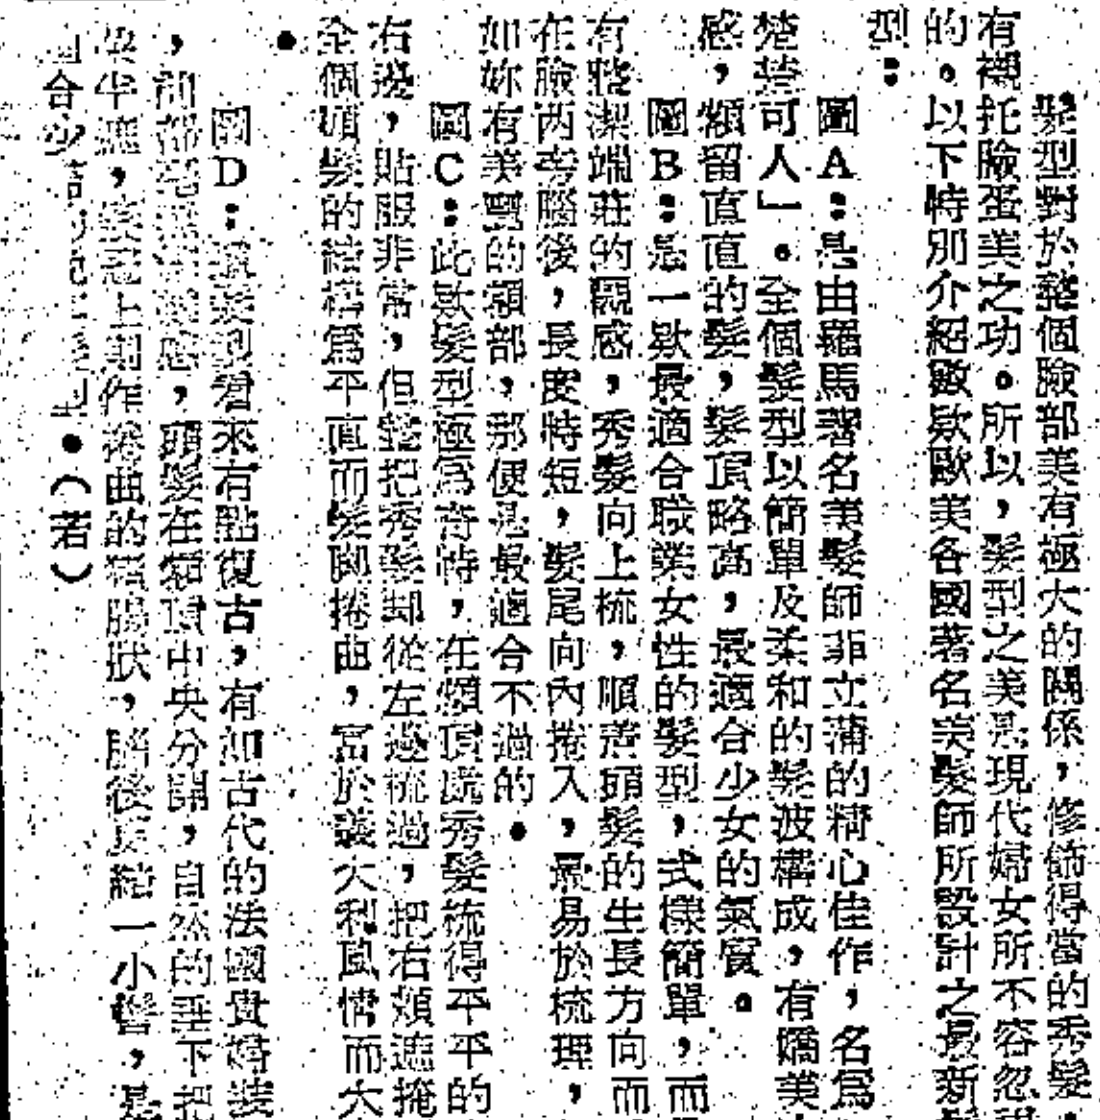 髮型對於整個臉部美有極大的關係，修飾得當的秀髮
有襯托臉蛋美之功。所以，髮型之美是現代婦女所不容忽
的。以下特別介紹數款歐美各國著名美髮師所設計之最新
型：
圖A：是由羅馬著名美髮師菲立蒲的精心佳作，名爲
楚楚可人」。全個髮型以簡單及柔和的髮波構成，有嬌美
感，額留直直的髮，髮頂略高，最適合少女的氣質。
圖B：是一款最適合職業女性的髮型，式樣簡單，而
有整潔端莊的觀感，秀髮向上梳，順着頭髮的生長方向而
在臉兩旁腦後，長度特短，髮尾向內捲入，最易於梳理，
如妳有美麗的額部，那便是最適合不過的。
圖C：此款髮型極爲奇特，在頭頂處秀髮梳得平平的
右邊，貼服非常，但整把秀髮却從左邊梳過，把右頰遮掩
全個頭髮的結構爲平直而髮脚捲曲，富於義大利風情而大
。
圖D：這髮型看來有點復古，有如古代的法國貴婦裝
，頭髮在額頂中央分開，自然的垂下把
半遮，上則作捲曲的猪腸狀，腦後反結一小髻，是
合少髮型。（若）